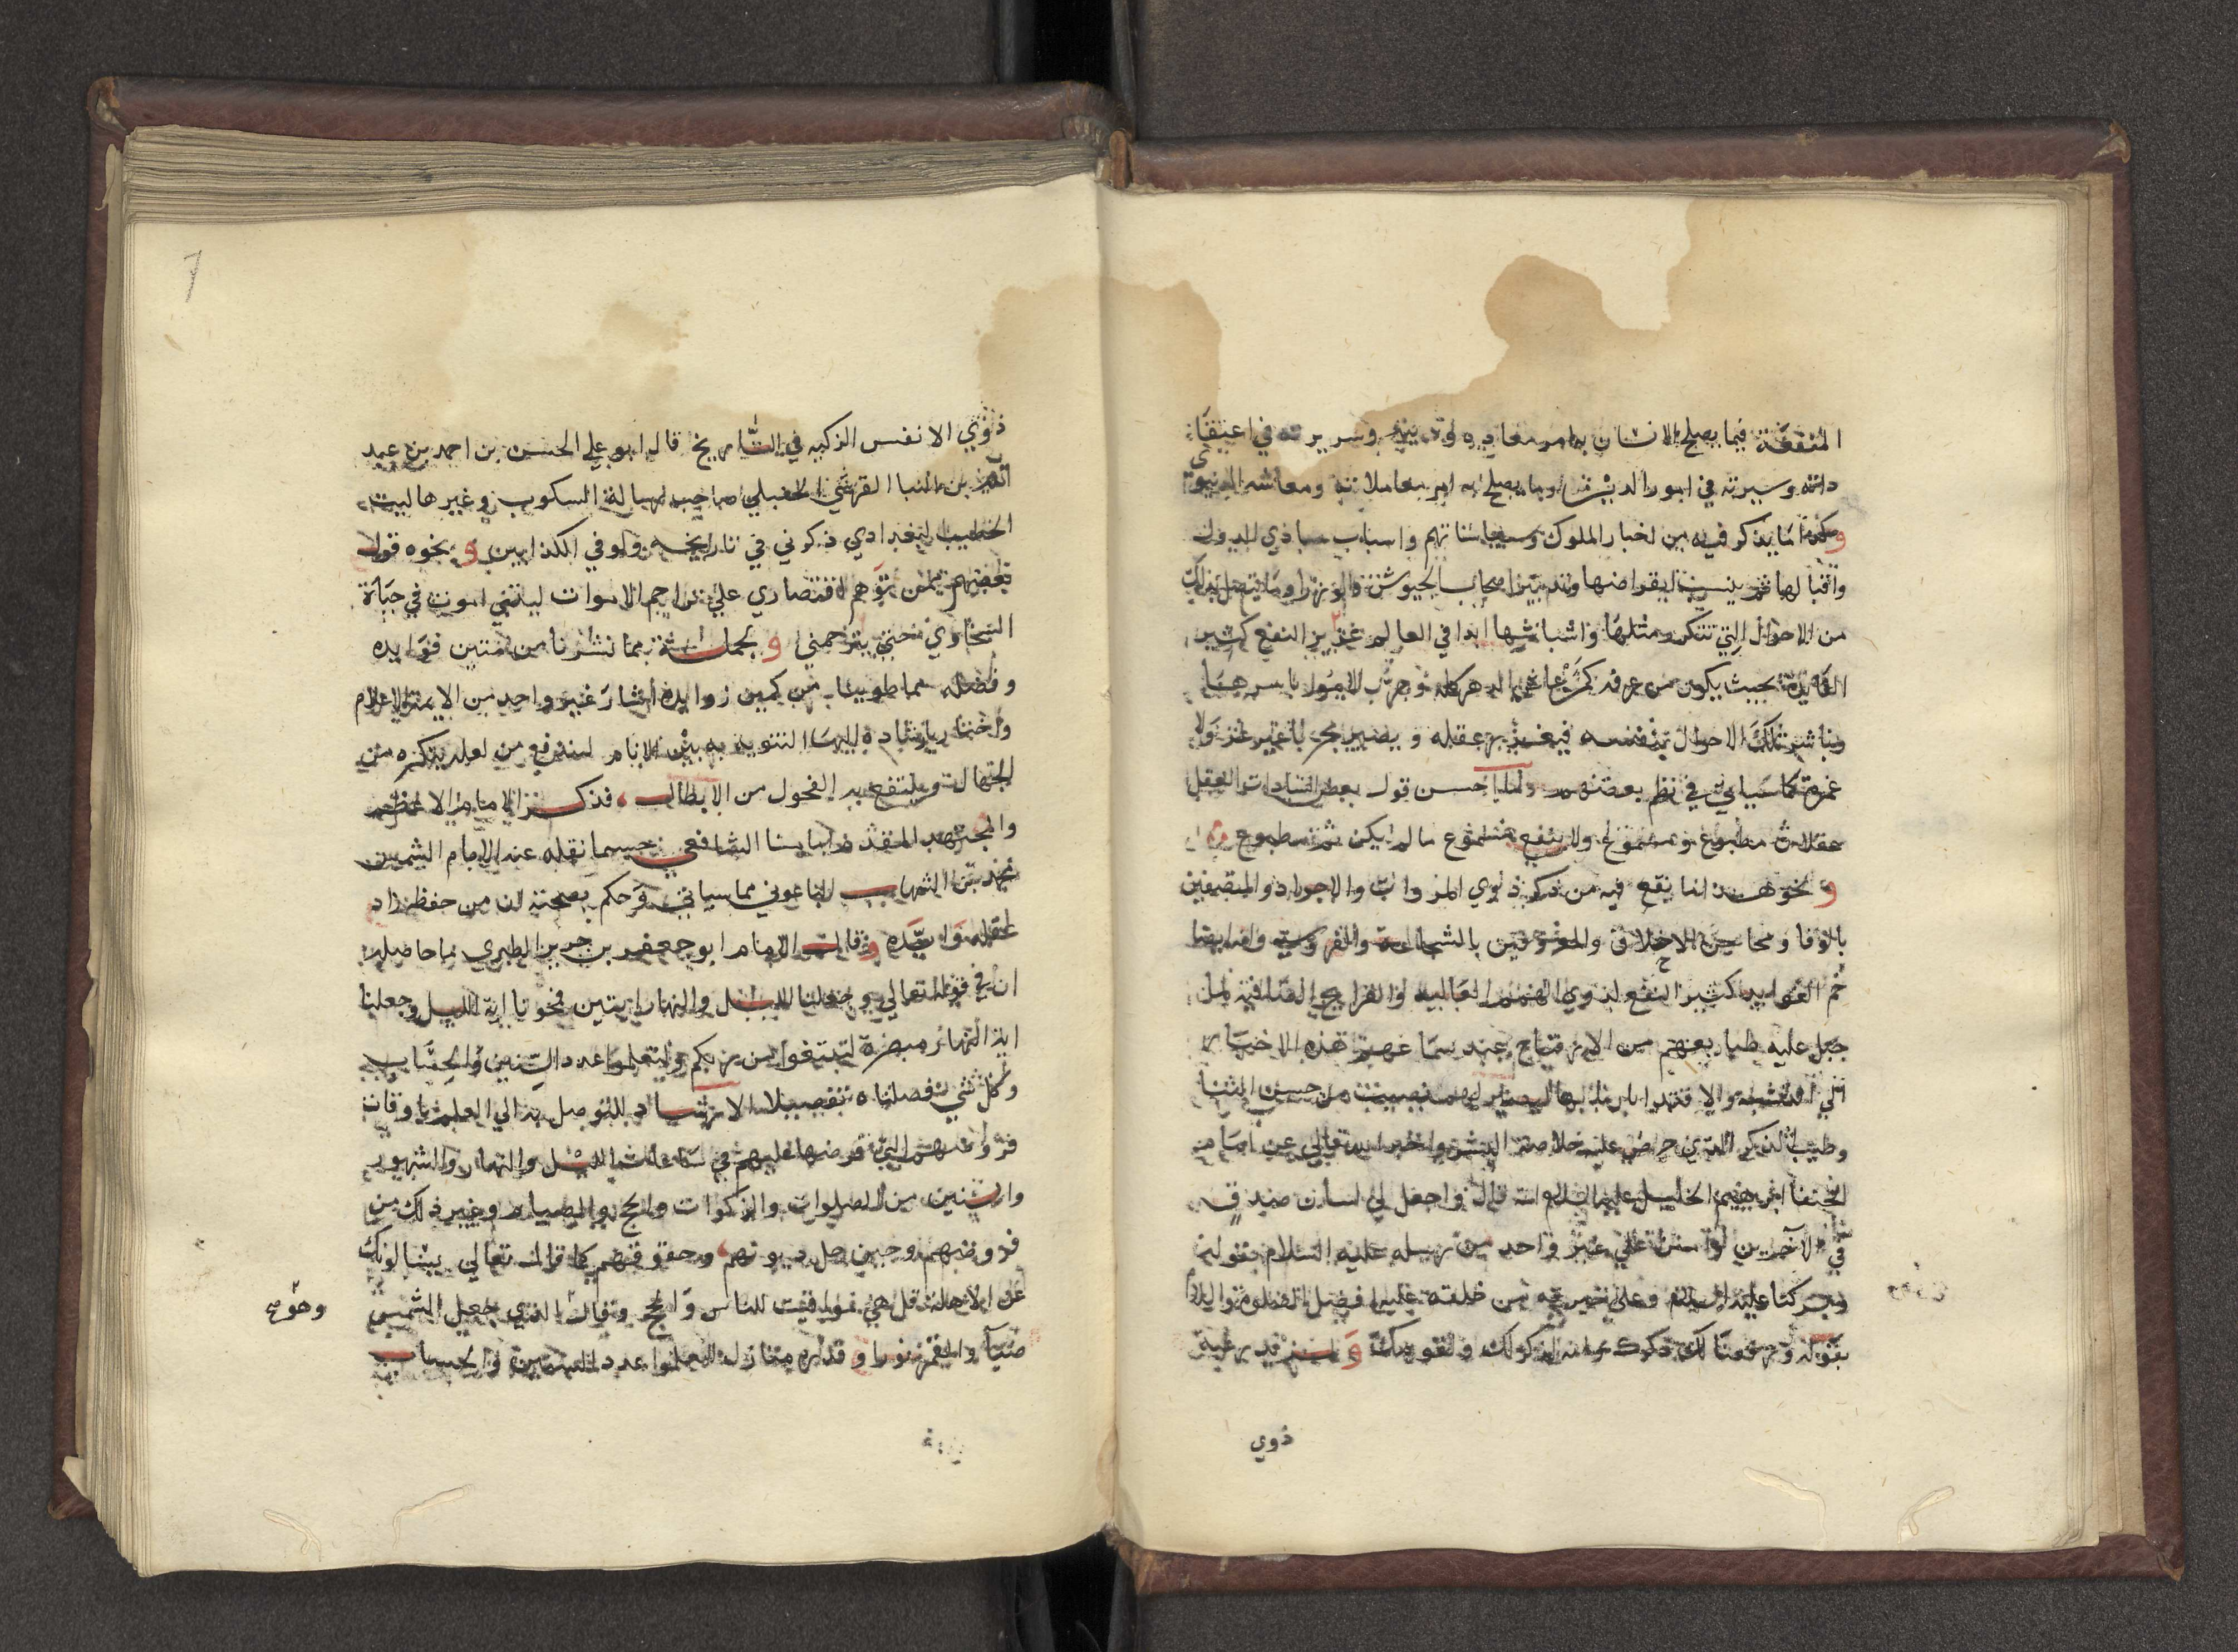 المنفعة فيما يصلح الانسان به امر معاده ودينه وسريرته في اعتقاد
داته وسيرته في امور الدين وما يصلح به امر معاملاته ومعاشه الدنيوي
وكذا ما يذكر فيه من اخبار الملوك وسياساتهم واسباب مبادي الدول
واقبالها ثم سبب انقراضها وتدبير اصحاب الجيوش والوزرا وما يتصل بذلك
من الاحوال التي تتكرر مثلها واشباهها ابدا في العالم غزير النفع كثير
الفايدة بحيث يكون من عرفه كمن عاش الدهر كله وجرب الامور باسرها
وباشر تلك الاحوال بنفسه فيغزر عقله ويصير مجربا غير غر ولا
غمر كما سياتي في نظم بعضهم ولما احسن قول بعض السادات العقل
عقلان مطبوع ومسموع ولا ينفع مسموع ما لم يكن ثم مطبوع
ونحوه انه نافع فيه من ذكر ذوي المروات والاجواد والمتصفين
بالوفا ومحاسن الاخلاق والمعروفين بالشجاعة والفروسية وانه ايضا
جم الفوايد كثير النفع لذوي الهمم العالية والقرايح الصافية لما
جبل عليه طباعهم من الارتياح عند سماعهم هذه الاخبار
الي التشبه والاقتدا باربابها ليصير لهم نصيب من حسن الثنا
وطيب الذكر الذي حرص عليه خلاصة البشر واخبر الله تعالى عن امام
الحنفا ابرهيم الخليل عليه السلام انه قال واجعل لي لسان صدق
في الاخرين وامتن على غير واحد من رسله عليه السلام بقوله
وتركنا عليه في الاخرين وعلى خيرته من خلقه عليه افضل الصلاة والسلام
بقوله ورفعنا لك ذكرك وانه لذكر لك ولقومك وقد رغب
ذوي
7
ذوي الانفس الزكيه في التاريخ قال ابو علي الحسن بن احمد بن عبد
الله بن البنا القرشي الحنبلي صاحب رسالة السكوت وغيرها ليت
الخطيب البغدادي ذكرني في تاريخه ولو في الكذابين ونحوه قول
بعضهم ممن توهم اقتصاري علي تراجم الاموات ليتني اموت في حياة
السخاوي حتى يترجمني وبجملة مما نشرنا من متين فوايده
وفضله مما طوينا من كمين زوايده اشار غير واحد من الايمة الاعلام
واختار بارشاده اليها التنويه به بين الانام ليندفع من لعله ينكره من
الجهال وينتفع به الفحول من الابطال فذكر الامام الاعظم
والمجتهد المقدم امامنا الشافعي حسبما نقله عنه الامام الشمس
محمد بن الشهاب الباعوني مما سياتي وحكم بصحته ان من حفظه زاد
عقله وايده وقال الامام ابو جعفر بن جرير الطبري ما حاصله
ان في قوله تعالى وجعلنا الليل والنهار ايتين فمحونا اية الليل وجعلنا
اية النهار مبصرة لتبتغوا من ربكم ولتعلموا عدد السنين والحساب
وكل شي فصلناه تفصيلا الارشاد للتوصل به الى العلم باوقات
فروضهم التي فرضها عليهم في ساعات الليل والنهار والشهور
والسنين من الصلوات والزكوات والحج والصيام وغير ذلك من
فروضهم وحين حل ديونهم وحقوقهم كما قال تعالى يسالونك
عن الاهلة قل هي مواقيت للناس والحج وقال الذي جعل الشمس
ضيآ والقمر نورا وقدره منازل لتعلموا عدد السنين والحساب
وحقوقهم